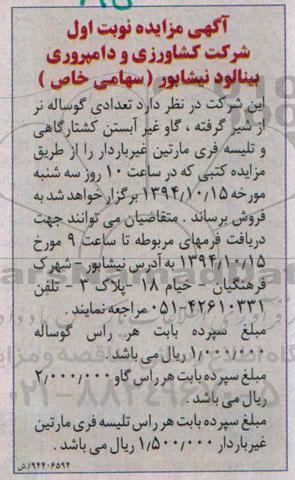 آگهی مزایده نوبت اول
شرکت کشاورزی و دامپروری
بینالود نیشابور (سهامی خاص)
این شرکت در نظر دارد تعدادی گوساله نر
از شیر گرفته ، گاو غیر آبستن کشتارگاهی
و تلیسه فری مارتین غیرباردار را از طریق
مزایده کتبی که در ساعت ۱۰ روز سه شنبه
مورخه ۱۳۹۴/۱۰/۱۵ برگزار خواهد شد به
فروش برساند . متقاضیان می توانند جهت
دریافت فرمهای مربوطه تا ساعت ۹ مورخ
۱۳۹۴/۱۰/۱۵ به آدرس نیشابور - شهرک
فرهنگیان - خیام ۱۸ - پلاک ۳ - تلفن
۰۵۱-۴۲۶۱۰۳۳۱ مراجعه نمایند .
مبلغ سپرده بابت هر راس گوساله
۱/۰۰۰/۰۰۰ ریال می باشد .
مبلغ سپرده بابت هر راس گاو ۲/۰۰۰/۰۰۰
ریال می باشد .
مبلغ سپرده بابت هر راس تلیسه فری مارتین
غیرباردار ۱/۵۰۰/۰۰۰ ریال می باشد .
۹۴۴۰۶۵۹۴/ش